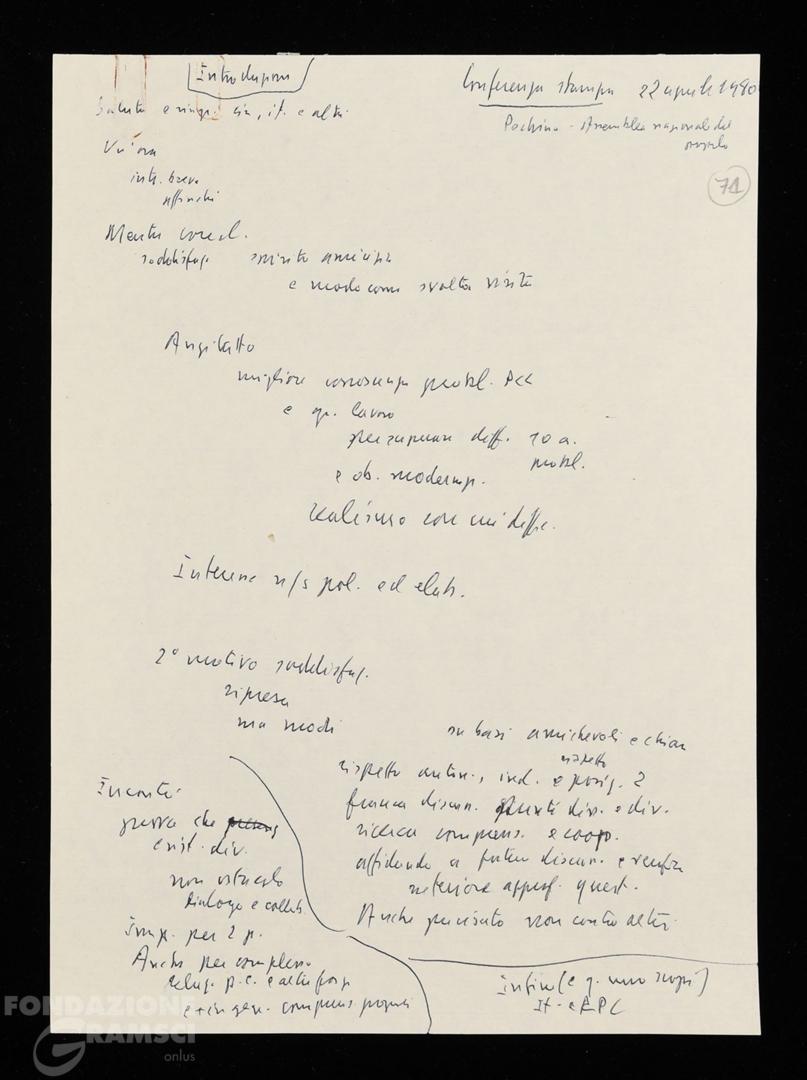 Introduzione
Conferenza stampa 22 aprile 1980
Pechino - Assemblea nazionale del
popolo
71
Saluto e ringr. cin, it. e altri
Un'ora
intr. breve
affinché
Mentre concl.
soddisfaz. spirito amicizia
e modo come svolta visita
Anzitutto
migliore conoscenza probl. PCC
e gr. lavoro
per superare diff. 10 a.
probl.
e ob. modernizz.
realismo con cui
Interesse n/s pol. ed elab.
2° motivo soddisfaz.
ripresa
ma modi
su basi amichevoli e chiare
rispetto
rispetto auton., ind. e posiz. 2
franca discuss. punti div. e div.
ricerca comprens. e coop.
affidando a future discuss. e verifica
ulteriore approf. quest.
Anche precisato non contro altri
Incontri
prova che
esist. div.
non ostacolo
dialogo e collab.
Imp. per 2 p.
Anche per complesso
relaz. p.c. e altre forze
e in gen. comprens. popoli
Infine (e q. uno scopi)
It - e RPC
FONDAZIONE
GRAMSCI
onlus